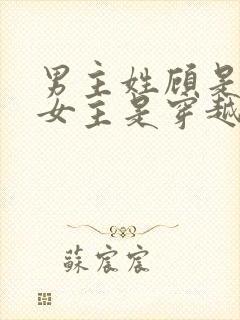 男主姓顾是
女主是穿越
蘇宸宸